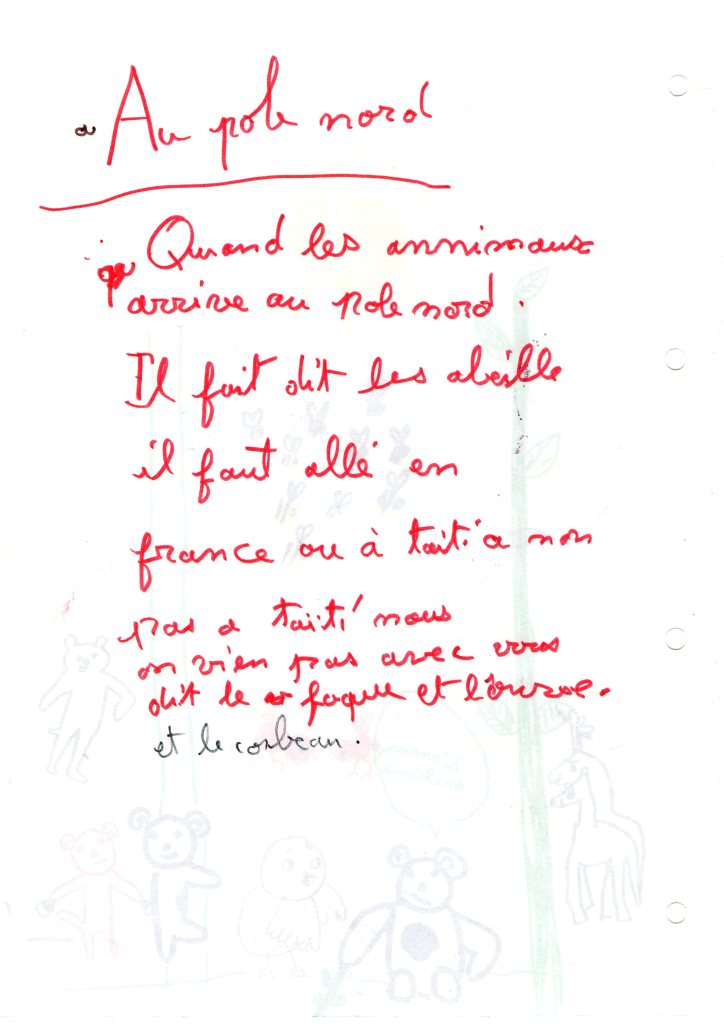 a Au pole nord
Quand les annimaux
arrive au pole nord.
Il fait dit les abeille
il faut allé en
france ou à taiti a non
pas a taiti nous
on vien pas avec vous
dit le foque et l'ourse.
et le corbeau.